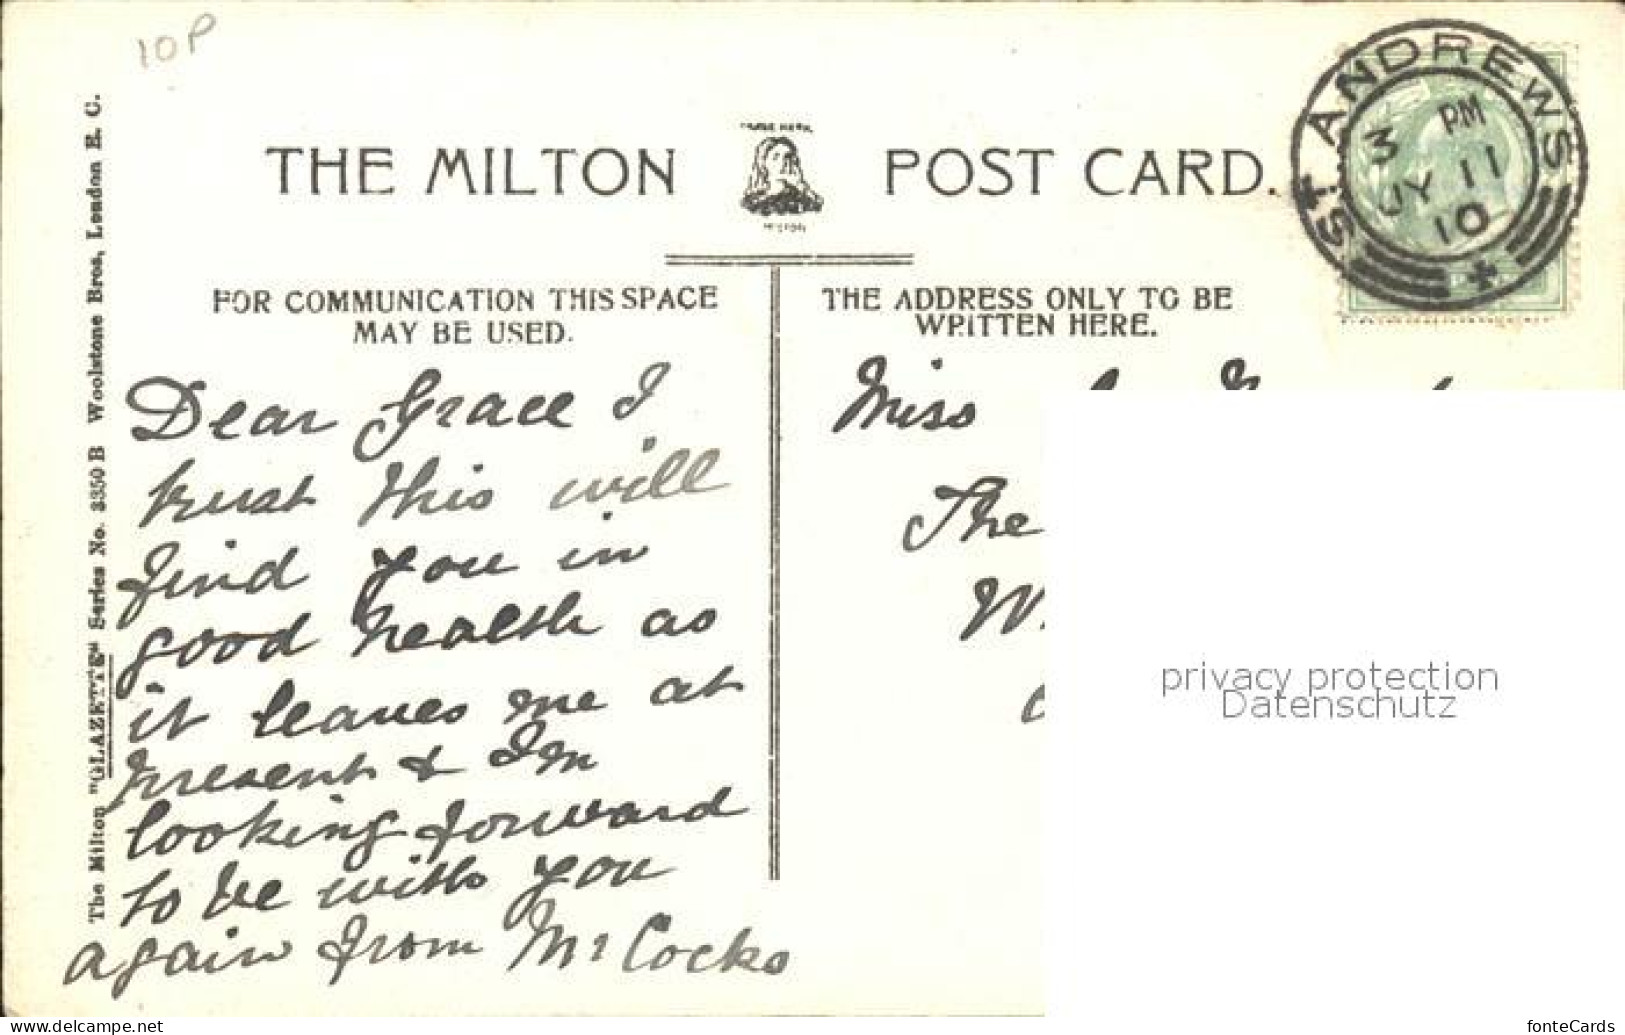 10P
THE MILTON POST CARD.
TRADE MARK
MILTON
ST. ANDREWS
3 PM
JY 11
10
FOR COMMUNICATION THIS SPACE
MAY BE USED.
THE ADDRESS ONLY TO BE
WRITTEN HERE.
The Milton "GLAZETTE" Series No. 3350 B Woolstone Bros, London E. C.
Dear Grace I
trust this will
find you in
good health as
it leaves me at
present & Im
looking forward
to be with you
again from Mr Cocks
Miss
The
privacy protection
Datenschutz
delcampe.net
fonteCards